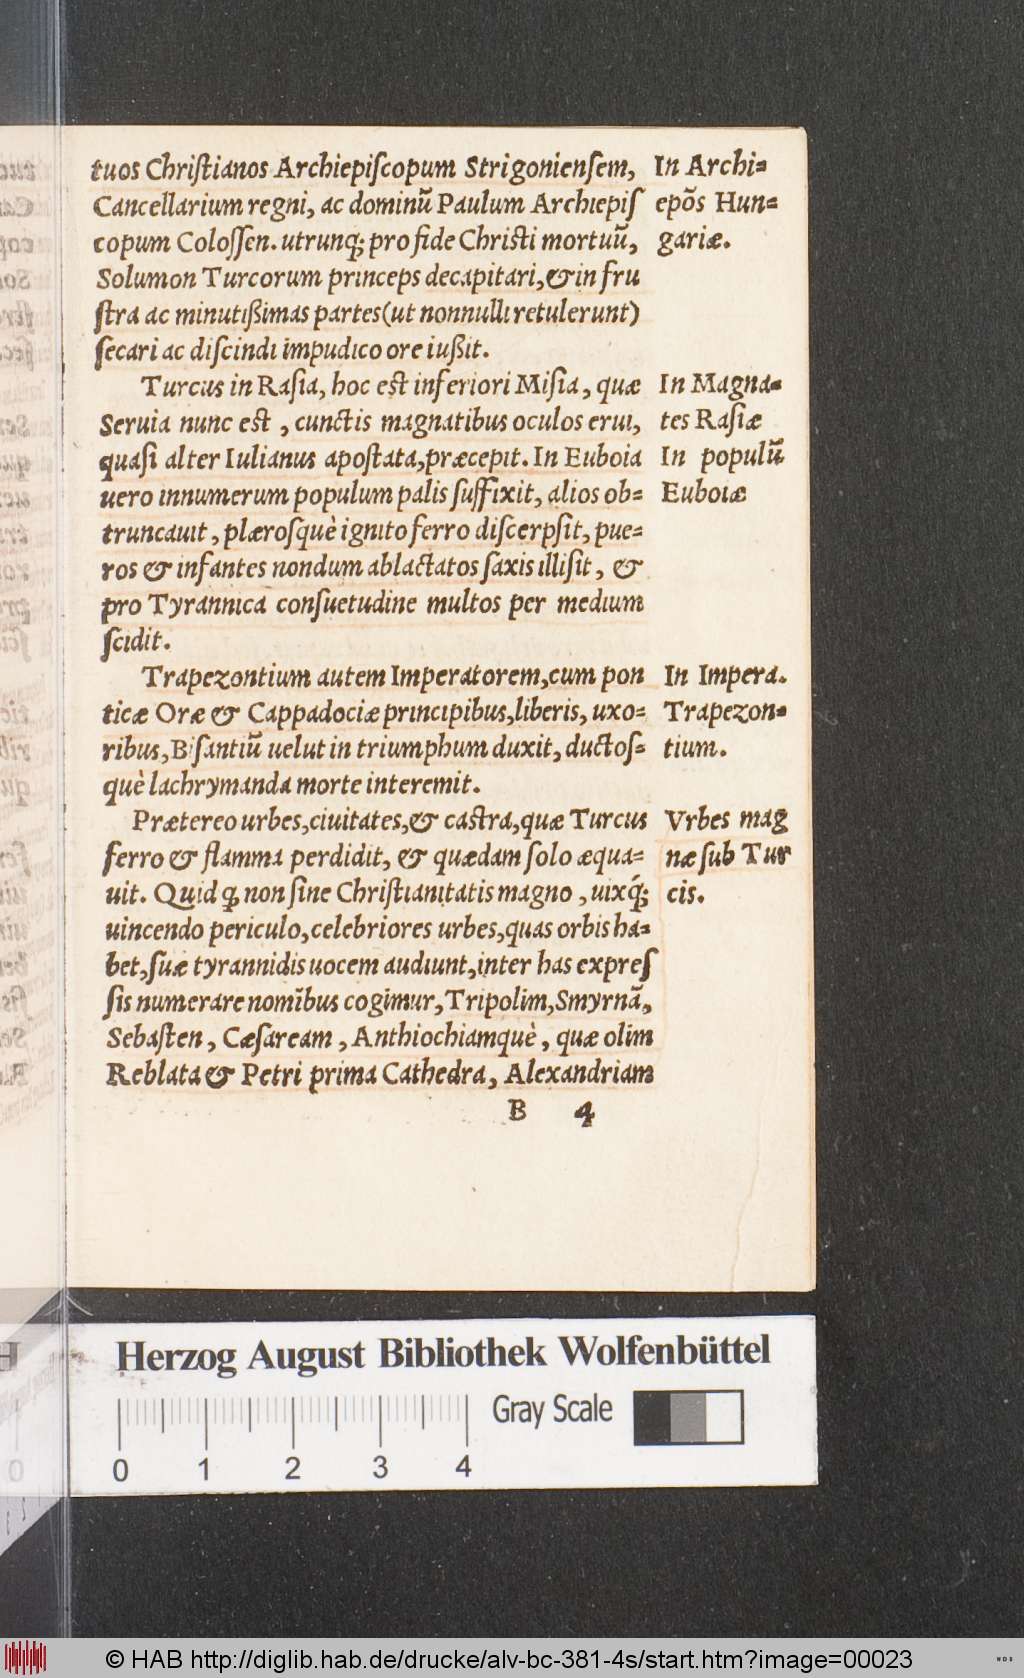 tuos Chriſtianos Archiepiſcopum Strigonienſem,
Cancellarium regni, ac dominũ Paulum Archiepiſ
copum Coloſſen. utrunq; pro fide Chriſti mortuũ,
Solumon Turcorum princeps decapitari, & in fru
ſtra ac minutißimas partes (ut nonnulli retulerunt)
ſecari ac diſcindi impudico ore iußit.
In Archi=
epõs Hun=
gariæ.
Turcus in Raſia, hoc eſt inferiori Miſia, quæ
Seruia nunc eſt, cunctis magnatibus oculos erui,
quaſi alter Iulianus apoſtata, præcepit. In Euboia
uero innumerum populum palis ſuffixit, alios ob=
truncauit, plæroſquè ignito ferro diſcerpſit, pue=
ros & infantes nondum ablactatos ſaxis illiſit, &
pro Tyrannica conſuetudine multos per medium
ſcidit.
In Magna=
tes Raſiæ
In populũ
Euboiæ
Trapezontium autem Imperatorem, cum pon
ticæ Oræ & Cappadociæ principibus, liberis, uxo=
ribus, Biſantiũ uelut in triumphum duxit, ductoſ=
què lachrymanda morte interemit.
In Impera.
Trapezon=
tium.
Prætereo urbes, ciuitates, & caſtra, quæ Turcus
ferro & flamma perdidit, & quædam ſolo æqua=
uit. Quid q; non ſine Chriſtianitatis magno, uixq́;
uincendo periculo, celebriores urbes, quas orbis ha=
bet, ſuæ tyrannidis uocem audiunt, inter has expreſ
ſis numerare nomĩbus cogimur, Tripolim, Smyrnã,
Sebaſten, Cæſaream, Anthiochiamquè, quæ olim
Reblata & Petri prima Cathedra, Alexandriam
Vrbes mag
næ ſub Tur
cis.
B 4
Herzog August Bibliothek Wolfenbüttel
Gray Scale
0 1 2 3 4
© HAB http://diglib.hab.de/drucke/alv-bc-381-4s/start.htm?image=00023